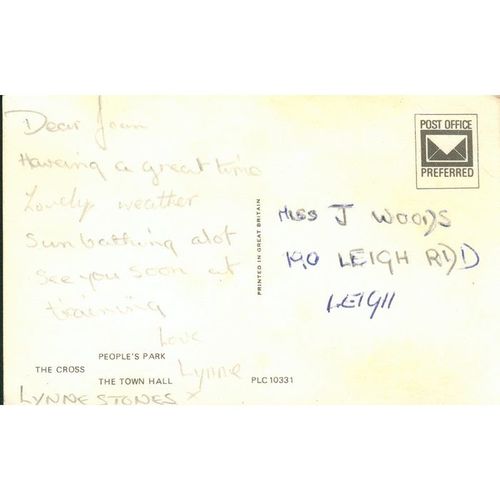 Dear Joan
Having a great time
Lovely weather
Sunbathing alot
See you soon at
training
Love
Lynne
x
LYNNE STONES
PEOPLE'S PARK
THE CROSS
THE TOWN HALL
PLC10331
PRINTED IN GREAT BRITAIN
POST OFFICE
PREFERRED
MISS J WOODS
190 LEIGH RD
LEIGH